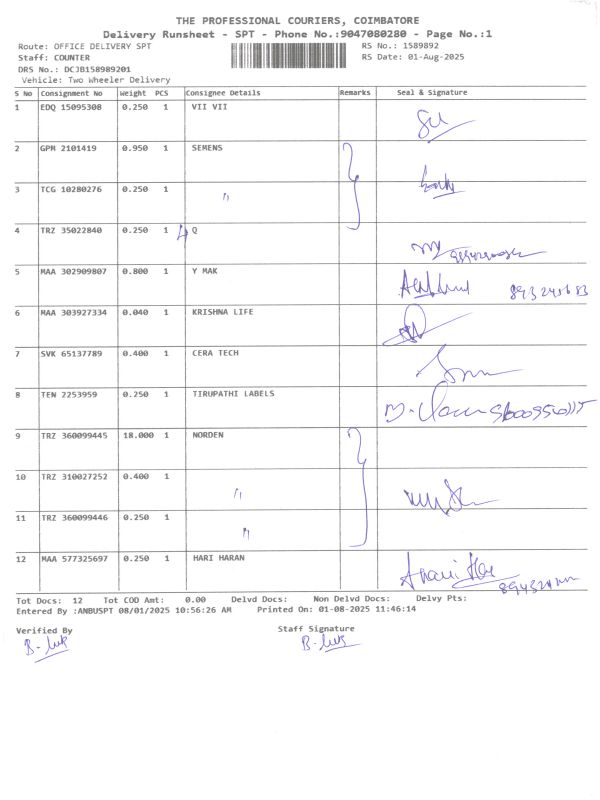 THE PROFESSIONAL COURIERS, COIMBATORE
Delivery Runsheet - SPT - Phone No.:9047080280 - Page No.:1
Route: OFFICE DELIVERY SPT RS No.: 1589892
Staff: COUNTER RS Date: 01-Aug-2025
DRS No.: DCJB158989201
Vehicle: Two Wheeler Delivery
S No Consignment No Weight PCS Consignee Details Remarks Seal & Signature
1 EDQ 15095308 0.250 1 VII VII
2 GPM 2101419 0.950 1 SEMENS
3 TCG 10280276 0.250 1 "
4 TRZ 35022840 0.250 1 Q
5 MAA 302909807 0.800 1 Y MAK
6 MAA 303927334 0.040 1 KRISHNA LIFE
7 SVK 65137789 0.400 1 CERA TECH
8 TEN 2253959 0.250 1 TIRUPATHI LABELS
9 TRZ 360099445 18.000 1 NORDEN
10 TRZ 310027252 0.400 1 "
11 TRZ 360099446 0.250 1 "
12 MAA 577325697 0.250 1 HARI HARAN
Tot Docs: 12 Tot COD Amt: 0.00 Delvd Docs: Non Delvd Docs: Delvy Pts:
Entered By :ANBUSPT 08/01/2025 10:56:26 AM Printed On: 01-08-2025 11:46:14
Verified By Staff Signature